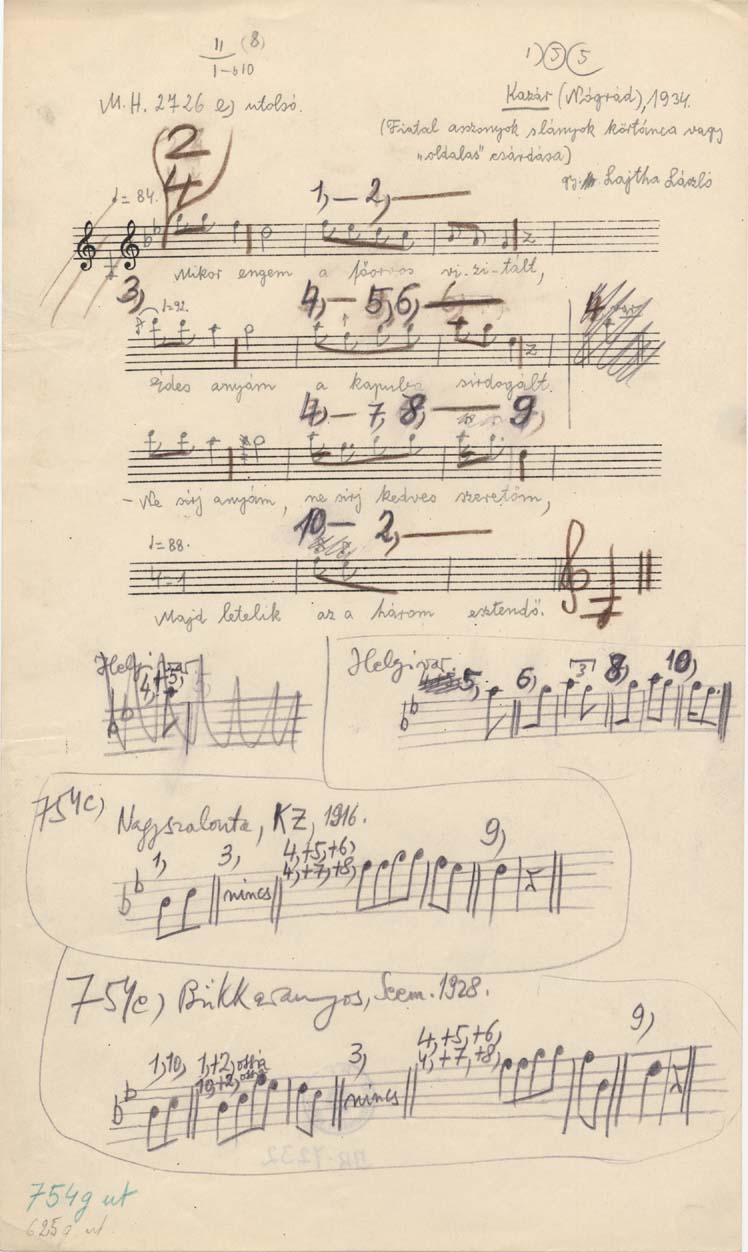 11 (8)
1-b10
1) 5 5
M.H. 2726 e) utolsó.
Kazár (Nógrád), 1934.
(Fiatal asszonyok s lányok körtánca vagy
"oldalas" csárdása)
gy. Lajtha László
2
4
♩=84.
1, — 2, —
Mikor engem a főorvos vi-zi-tált,
3,
♩=92.
4, — 5, 6, —
4
Édes anyám a kapuba sírdogált.
4, — 7, 8, — 9,
- Ne sírj anyám, ne sírj kedves szeretőm,
♩=88.
10, — 2, —
4-1
Majd letelik az a három esztendő.
Helyi var.
4,+5,
Helyi var.
5, 6, 3 8, 10,
754c) Nagyszalonta, KZ, 1916.
1, 3, 4,+5,+6, 9,
4,+7,+8,
nincs
754e) Bükkaranyos, Seem. 1928.
1,10, 1,+2, ossia 3, 4,+5,+6, 9,
10,+2, ossia 4,+7,+8,
nincs
754g ut
625g ut